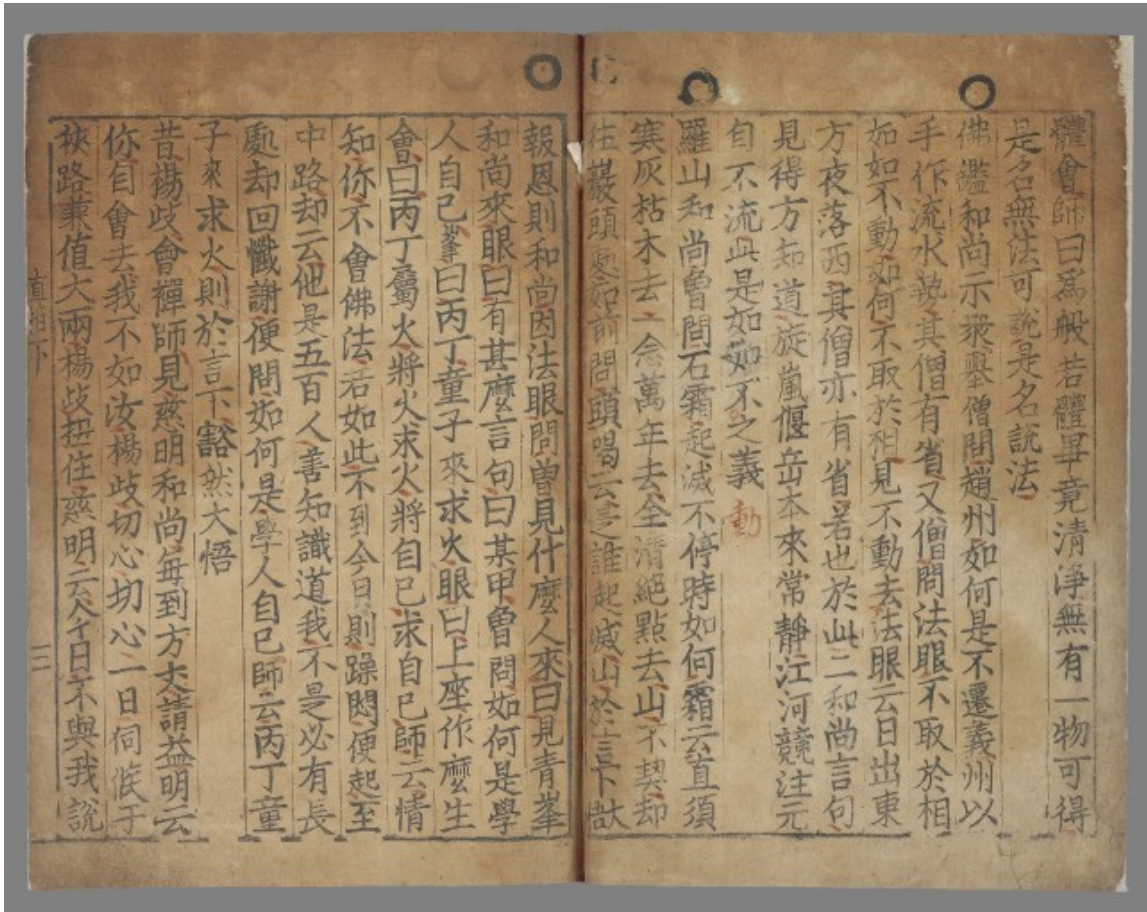 體會師曰爲般若體畢竟清淨無有一物可得
是名無法可說是名說法
佛鑑和尚示衆擧僧問趙州如何是不遷義州以
手作流水勢其僧有省又僧問法眼不取於相
如如不動如何不取於相見不動去法眼云日出東
方夜落西其僧亦有省若也於此二和尚言句
見得方知道旋嵐偃岳本來常靜江河競注元
自不流此是如如不之義
動
羅山和尚曾問石霜起滅不停時如何霜云直須
寒灰枯木去一念萬年去全清絕點去山不契却
往巖頭處如前問頭喝云是誰起滅山於言下猷
報恩則和尚因法眼問曾見什麼人來曰見靑峯
和尚來眼曰有甚麼言句曰某甲曾問如何是學
人自己峯曰丙丁童子來求火眼曰上座作麼生
會曰丙丁屬火將火求火將自己求自己師云情
知你不會佛法若如此不到今日則躁悶便起至
中路却云他是五百人善知識道我不是必有長
處却回懺謝便問如何是學人自己師云丙丁童
子來求火則於言下豁然大悟
昔楊歧會禪師見慈明和尚每到方丈請益明云
你自會去我不如汝楊歧切心切心一日伺候于
狹路兼値大雨楊歧扭住慈明云今日不與我說
直指下
三